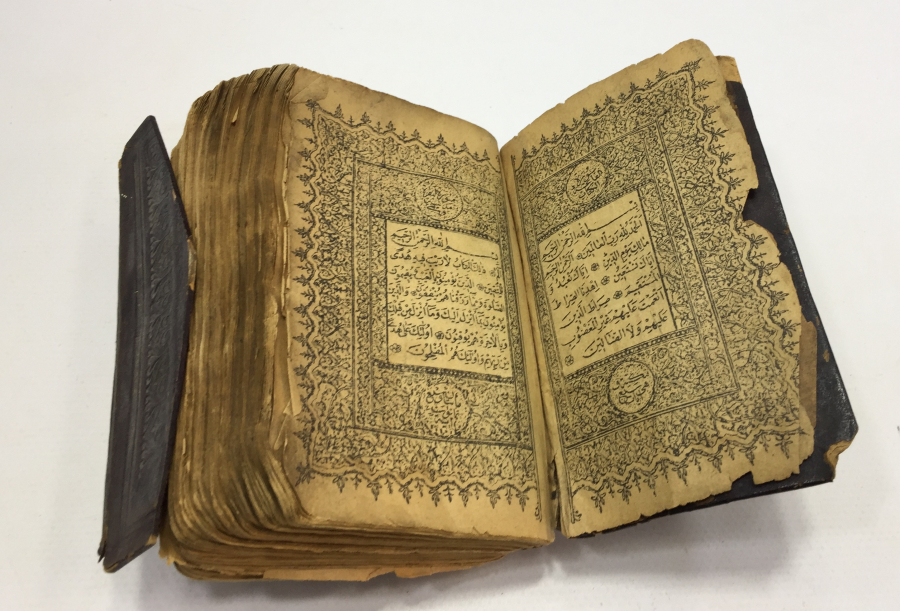 بسم الله الرحمن الرحيم
الحمد لله رب العالمين الرحمن الرحيم
مالك يوم الدين اياك نعبد و
اياك نستعين اهدنا الصراط
المستقيم صراط الذين
انعمت عليهم غير المغضوب
عليهم ولا الضالين
بسم الله الرحمن الرحيم
الم ذلك الكتاب لا ريب فيه هدى
للمتقين الذين يؤمنون بالغيب ويقيمون
الصلوة ومما رزقناهم ينفقون والذين
يؤمنون بما انزل اليك وما انزل من قبلك
وبالآخرة هم يوقنون اولئك على هدى
من ربهم واولئك هم المفلحون